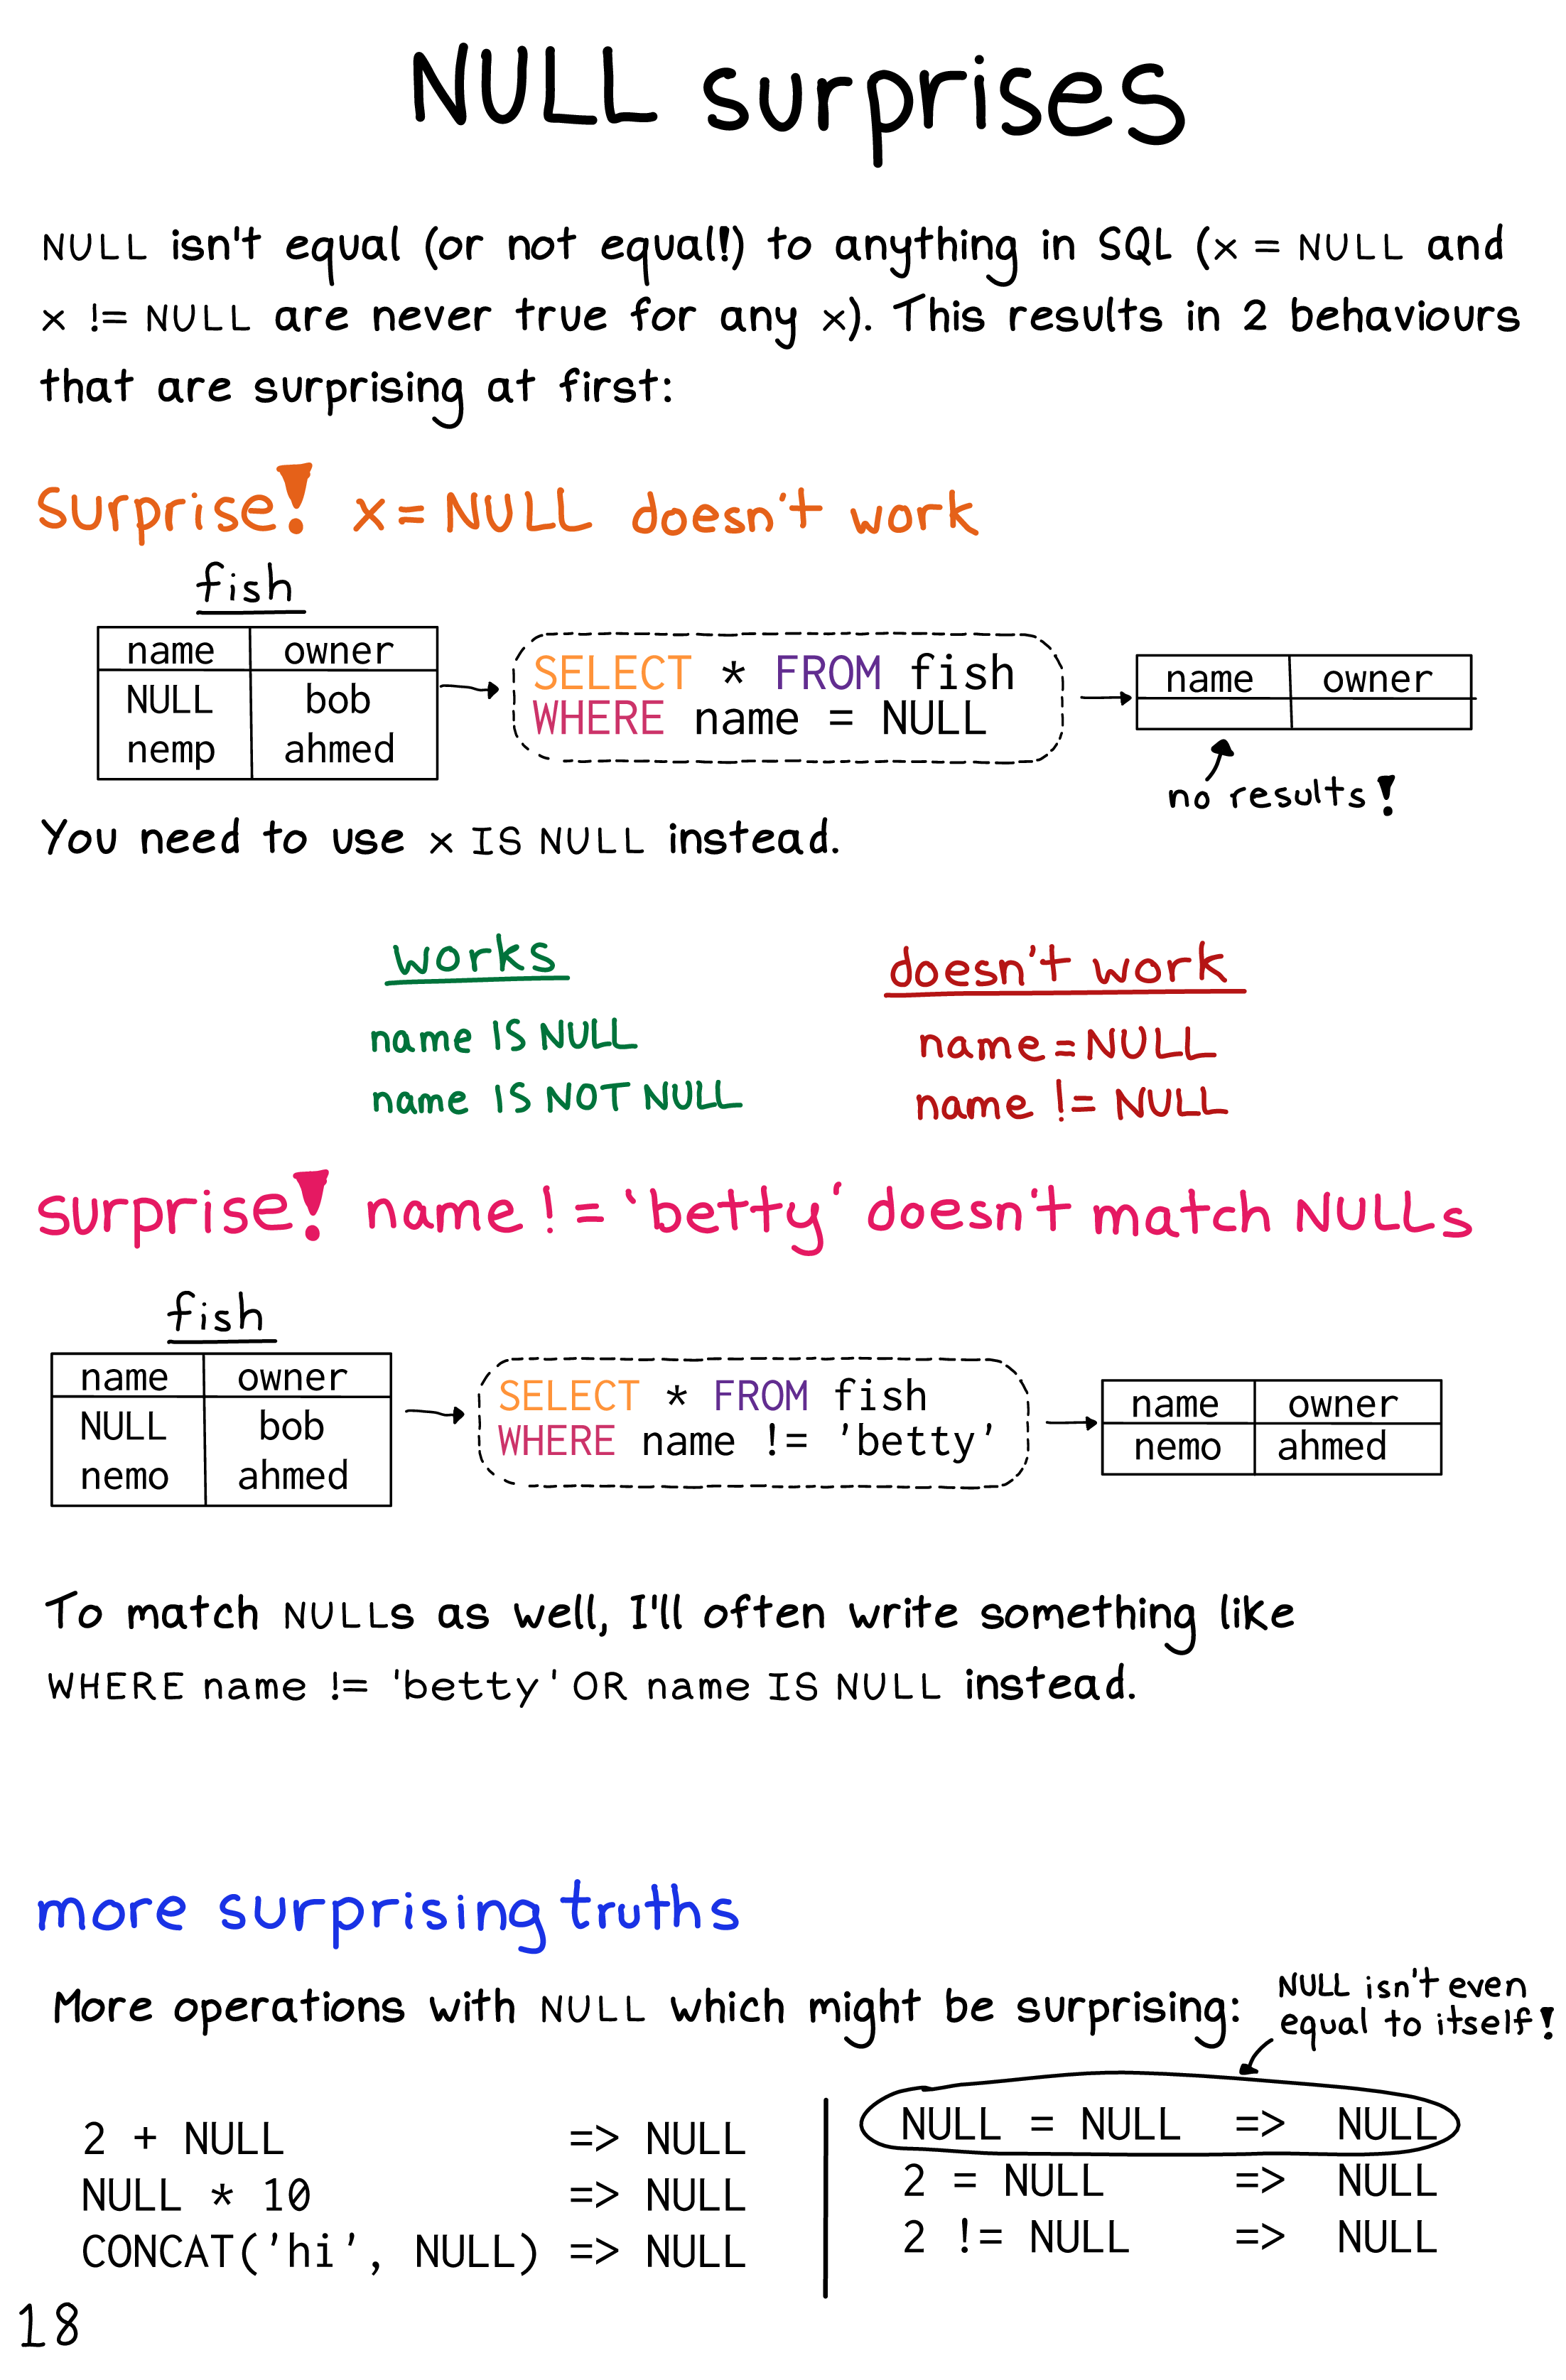 NULL surprises
NULL isn't equal (or not equal!) to anything in SQL (x = NULL and
x != NULL are never true for any x). This results in 2 behaviours
that are surprising at first:
surprise! x = NULL doesn't work
fish
name owner
NULL bob
nemp ahmed
SELECT * FROM fish
WHERE name = NULL
name owner
no results!
You need to use x IS NULL instead.
works
name IS NULL
name IS NOT NULL
doesn't work
name = NULL
name != NULL
surprise! name != 'betty' doesn't match NULLs
fish
name owner
NULL bob
nemo ahmed
SELECT * FROM fish
WHERE name != 'betty'
name owner
nemo ahmed
To match NULLs as well, I'll often write something like
WHERE name != 'betty' OR name IS NULL instead.
more surprising truths
More operations with NULL which might be surprising:
NULL isn't even
equal to itself!
2 + NULL => NULL
NULL * 10 => NULL
CONCAT('hi', NULL) => NULL
NULL = NULL => NULL
2 = NULL => NULL
2 != NULL => NULL
18